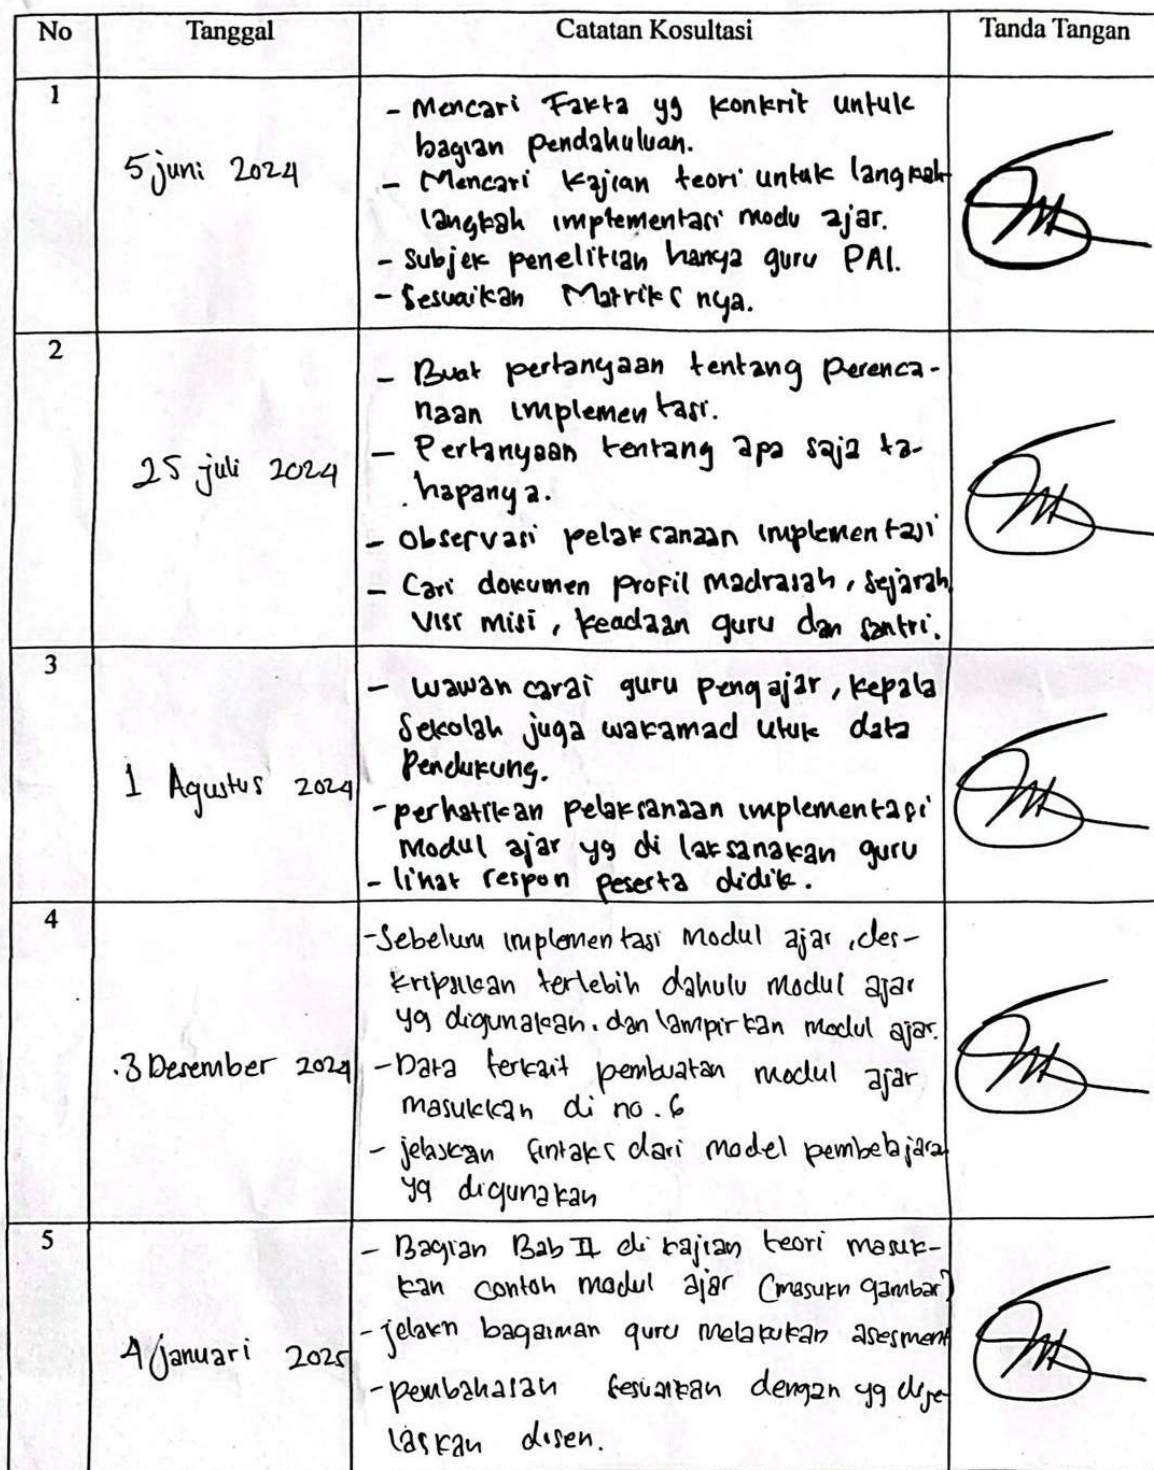 No Tanggal Catatan Kosultasi Tanda Tangan
1
5 juni 2024
- Mencari Fakta yg konkrit untuk
bagian pendahuluan.
- Mencari kajian teori untuk langkah
langkah implementasi modu ajar.
- Subjek penelitian hanya guru PAI.
- Sesuaikan Matriks nya.
2
25 juli 2024
- Buat pertanyaan tentang perenca-
naan implementasi.
- Pertanyaan tentang apa saja ta-
hapanya.
- Observasi pelaksanaan implementasi
- Cari dokumen profil madrasah, sejarah
visi misi, keadaan guru dan santri.
3
1 Agustus 2024
- wawancarai guru pengajar, kepala
sekolah juga wakamad utuk data
pendukung.
- perhatikan pelaksanaan implementasi
modul ajar yg di laksanakan guru
- lihat respon peserta didik.
4
3 Desember 2024
- Sebelum implementasi modul ajar, des-
kripsikan terlebih dahulu modul ajar
yg digunakan. dan lampirkan modul ajar.
- Data terkait pembuatan modul ajar
masukkan di no. 6
- jelaskan sintaks dari model pembelajara
yg digunakan
5
4 januari 2025
- Bagian Bab II di kajian teori masuk-
kan contoh modul ajar (masukn gambar)
- jelaskn bagaiman guru melakukan asesment
- pembahasan sesuaikan dengan yg dije-
laskan disen.